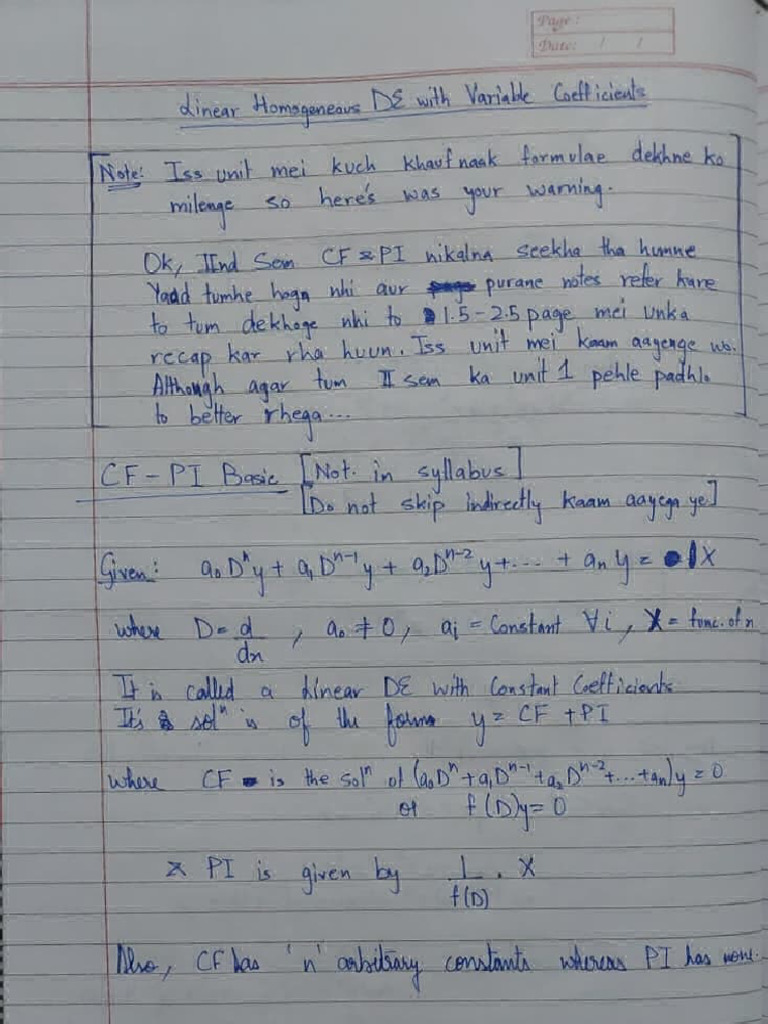 Page:
Date: / /
Linear Homogeneous DE with Variable Coefficients
Note: Iss unit mei kuch khaufnaak formulae dekhne ko
milenge so here's was your warning.
Ok, IInd Sem CF & PI nikalna seekha tha humne
Yaad tumhe hoga nhi aur purane notes refer kare
to tum dekhoge nhi to 1.5-2.5 page mei unka
recap kar rha huun. Iss unit mei kaam aayenge wo.
Although agar tum II sem ka unit 1 pehle padhlo
to better rhega...
CF-PI Basic [Not in syllabus]
[Do not skip indirectly kaam aayega ye]
Given: a₀Dⁿy + a₁Dⁿ⁻¹y + a₂Dⁿ⁻²y + ... + aₙy = X
where D = d/dx, a₀ ≠ 0, aᵢ = Constant ∀i, X = func. of x
It is called a Linear DE with Constant Coefficients
It's solⁿ is of the form y = CF + PI
where CF is the solⁿ of (a₀Dⁿ + a₁Dⁿ⁻¹ + a₂Dⁿ⁻² + ... + aₙ)y = 0
or f(D)y = 0
& PI is given by 1/f(D) . X
Also, CF has 'n' arbitrary constants whereas PI has none.